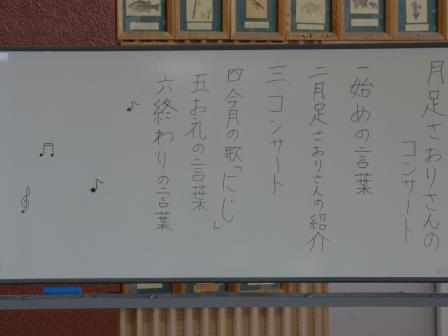 月足さおりさんの
コンサート
一始めの言葉
二月足さおりさんの紹介
三、コンサート
四今月の歌「にじ」
五お礼の言葉
六終わりの言葉